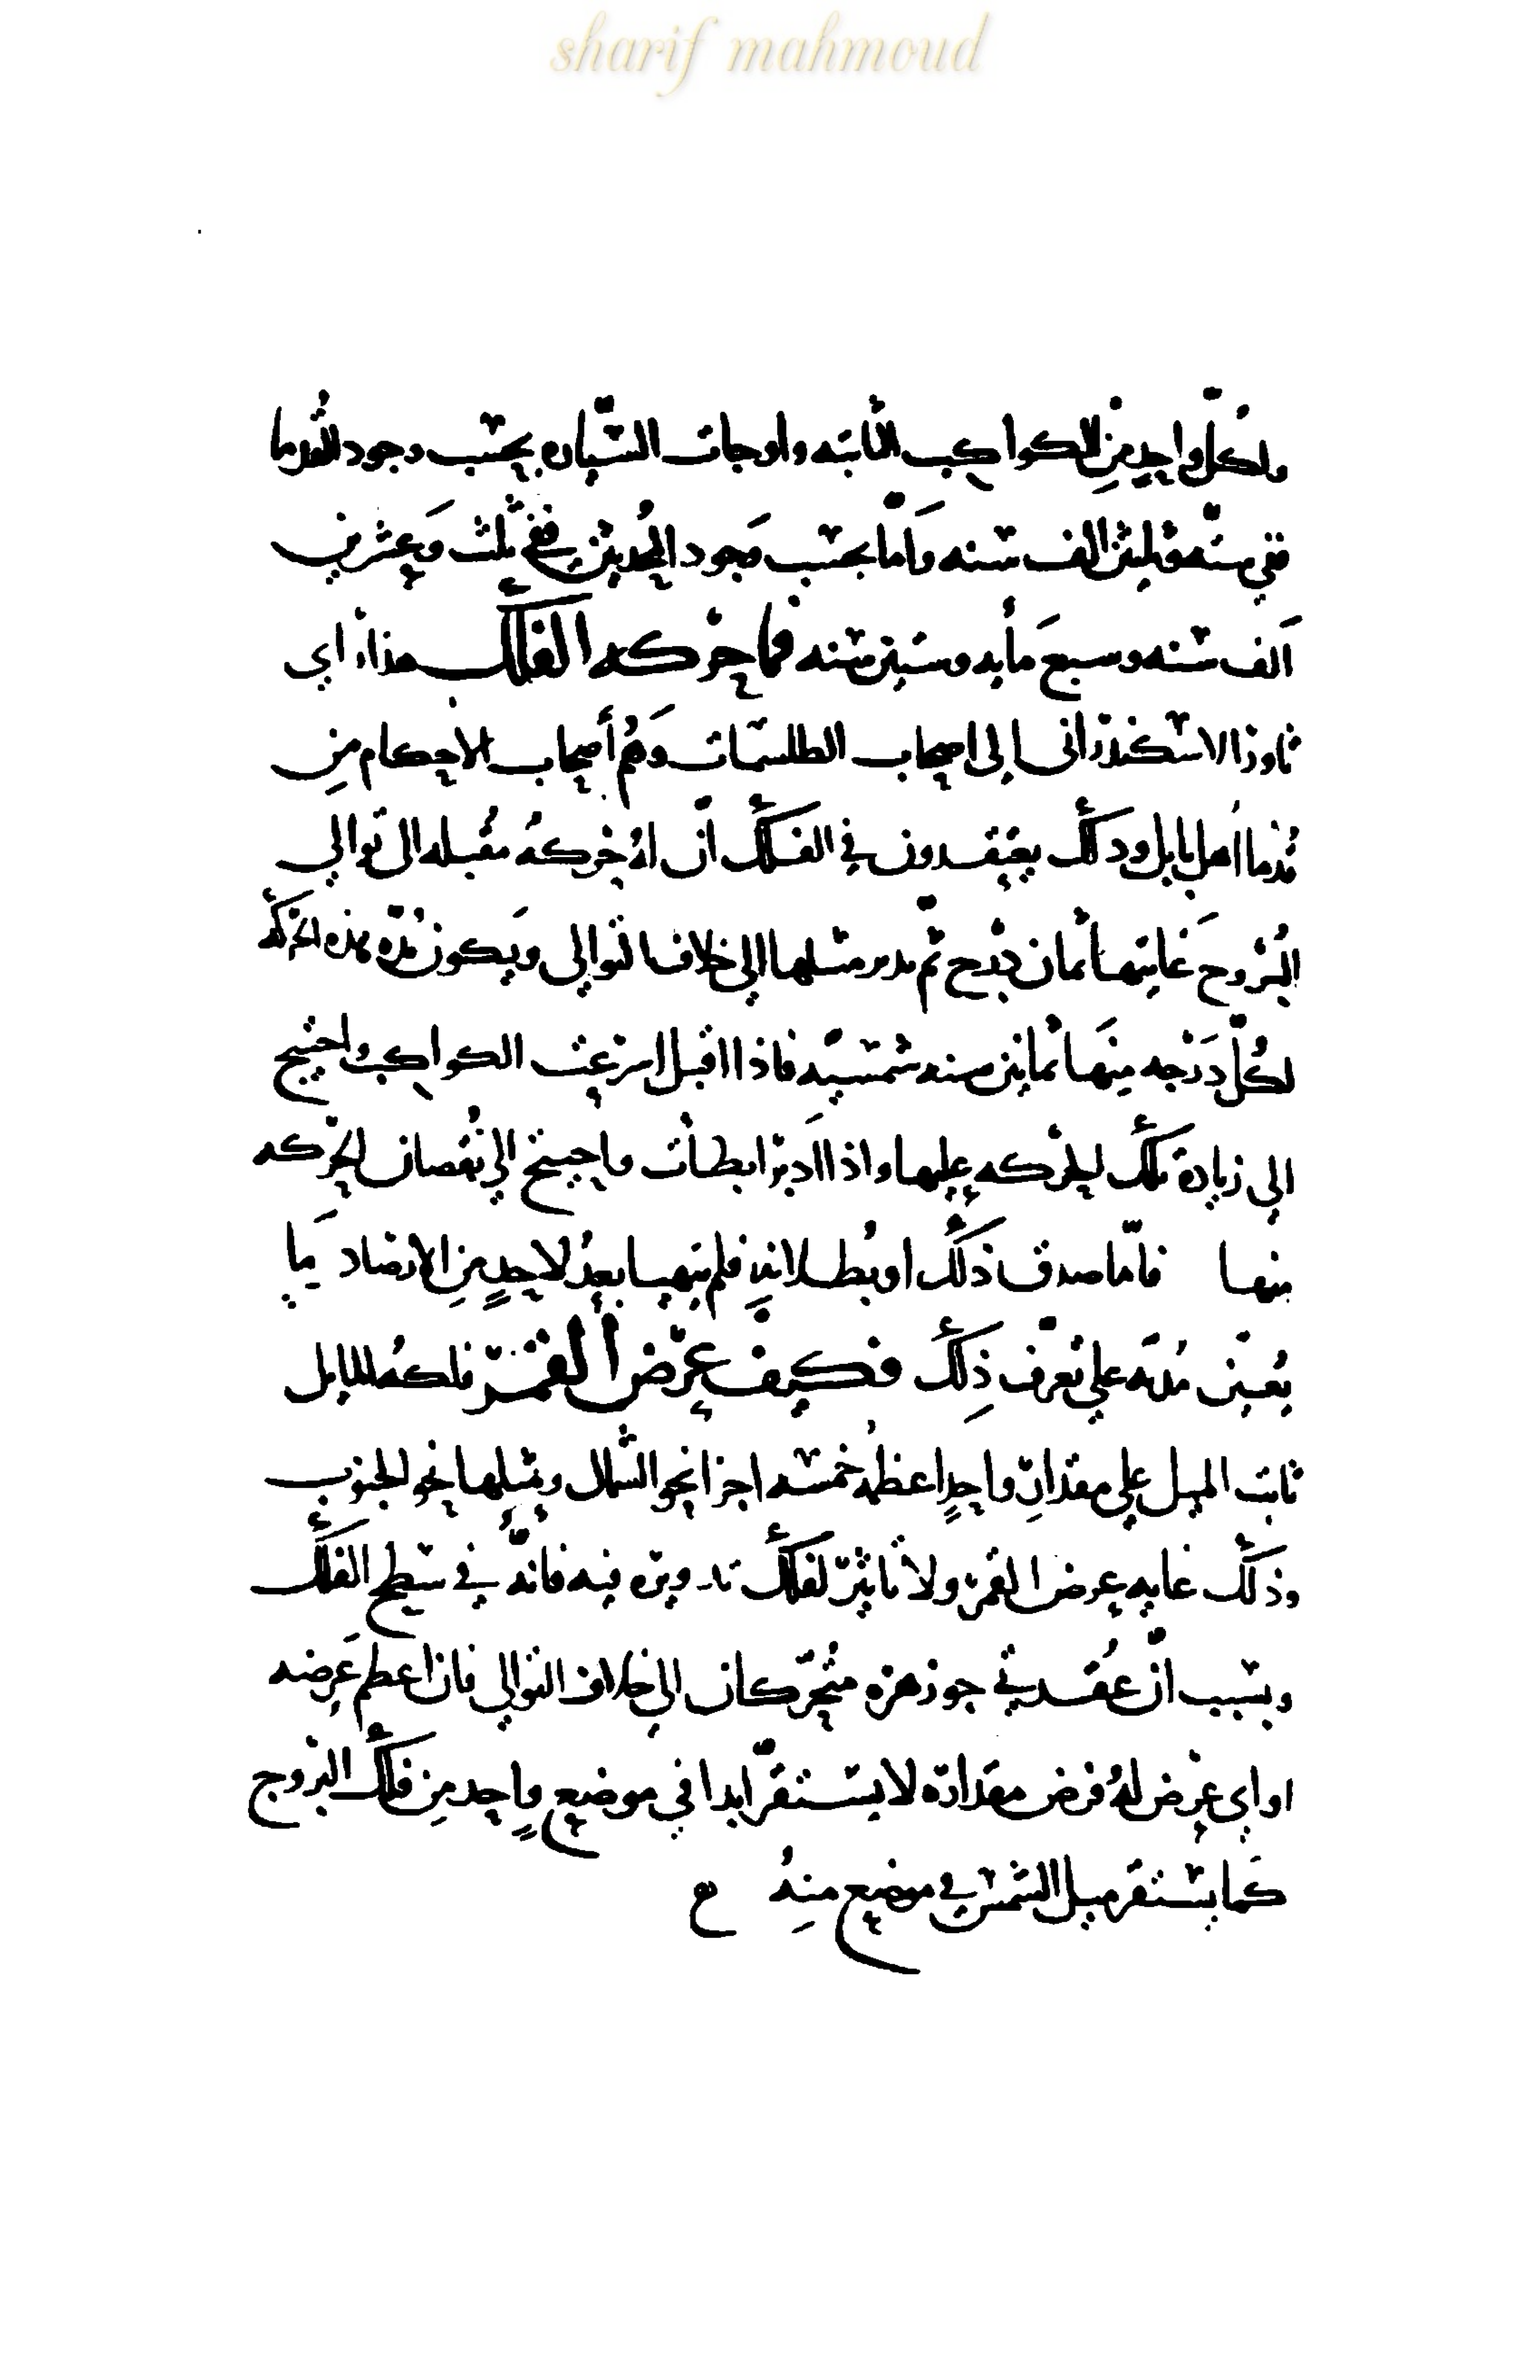 sharif mahmoud
ولكلّ واحدٍ منِ الكواكب الثابته واوجات السّيّاره بحسب وجود القُدما
ففي ستّه وثلثين الف سنه وَامّا بحسب وَجود المُحدثين ففي ثلث وَعشرين
اَلف سنه وسبع مَأيه وستين سنه فما حركه الفلَك هذا راي
ثاوذا الاسكندراني الى اصحاب الطلسمات وَهُم أصحاب الاحكام منِ
قُدما اهل بابل ودلَك يعتقدون في الفلَك انّ لهُ حركهُ مقُبله الى توالي
البُرُوح غَايتها ثمان درح ثمّ يدبر مثلها الى خلاف التوالى ويَكون مُدّه هذه الحركَه
لكُلّ دَرَجه مِنَها ثمانين سنه شمسيّه فاذا اقبل اسرعت الكواكب واحتيج
الى زيادة تلَك الحركه عليها واذا اَدبر ابطأت واحتيج الى نقُصان الحركه
منها فامّا صدق ذَلَك او بُطلانه فلم يتهيا بعدُ لاحدٍ منِ الارصاد مَا
يُعين مُدته على تعرّف ذلِك فكيف عرض ألقمر فلكهُ المايل
ثابت الميل على مقدارِ واحدٍ اعظمهُ خمسه اجزا نحو الشّمال ومثلها نحو الجنوب
وذلَك غايه عرض القمر ولا تاثير لفلَك تدويره فيه فانّهُ في سطح الفلَك
وبسبب انّ عُقدتي جوزهره مُتحرّكتان الى خلاف التوالي فان اعظم عَرضه
او اي عرض لهُ فرض مقداره لا يستقرّ ابدا في موضع واحد منِ فلَك البروج
كَما يستقر ميل الشمس في موضع منِهُ